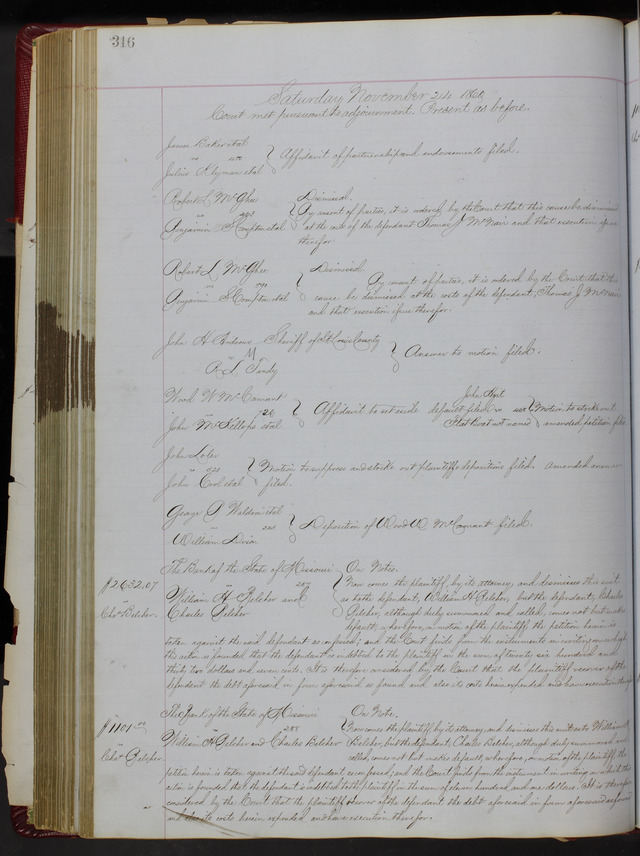 316
Saturday November 24 1860
Court met pursuant to adjournment. Present as before.
James Baker et al
vs
Julius Klyman et al } Affidavit of partnership and endorsements filed.
Robert L. McGhee
vs
Benjamin S. Compton et al } Dismissal.
By consent of parties, it is ordered by the Court that this cause be dismissed
at the cost of the defendant Thomas J McNair and that execution issue
therefor.
Robert L. McGhee
vs
Benjamin S Compton et al } Dismissal.
By consent of parties, it is ordered by the Court that this
cause be dismissed at the costs of the defendant, Thomas J. McNair
and that execution issue therefor.
John H Andrews Sheriff of St Louis County
vs
R. S. Tandy } Answer to motion filed.
Wood W McCannant
vs 26
John McKillops et al } Affidavit to set aside default filed
John Hart
vs
That is not named } Motion to strike out
amended petition filed.
John Loler
vs
John Crol et al } Motion to suppress and strike out plaintiffs depositions filed. Amended answer
filed.
George P Waldem et al
vs
William Dvin } Deposition of Wood W. McCannant filed.
The Bank of the State of Missouri
vs 287
William H. Belcher and
Charles Belcher } On Notes.
$2,632.07
vs
Chas Belcher.
Now comes the plaintiff by its attorney, and dismisses this suit
as to the defendant, William H Belcher, but the defendant, Charles
Belcher, although duly summoned and called, comes not but makes
default, wherefore, on motion of the plaintiff the petition herein is
taken against the said defendant as confessed; and the Court finds from the instruments in writing on which
this action is founded that the defendant is indebted to the plaintiff in the sum of twenty six hundred and
thirty two dollars and seven cents. It is therefore considered by the Court that the plaintiff recover of the
defendant the debt aforesaid in form aforesaid as found and also its costs herein expended and have execution therefor.
The Bank of the State of Missouri
vs 288
William H Belcher and Charles Belcher } On Note.
$1101.00
vs
Chas Belcher.
Now comes the plaintiff, by its attorney, and dismisses this suit as to William H
Belcher, but the defendant, Charles Belcher, although duly summoned and
called, comes not but makes default, wherefore, on motion of the plaintiff, the
petition herein is taken against the said defendant, as confessed; and the Court finds from the instrument in writing on which this
action is founded, that the defendant is indebted to the plaintiff in the sum of eleven hundred and one dollars. It is therefore
considered by the Court that the plaintiff recover of the defendant the debt aforesaid in form aforesaid as found
and also its costs herein expended and have execution therefor.